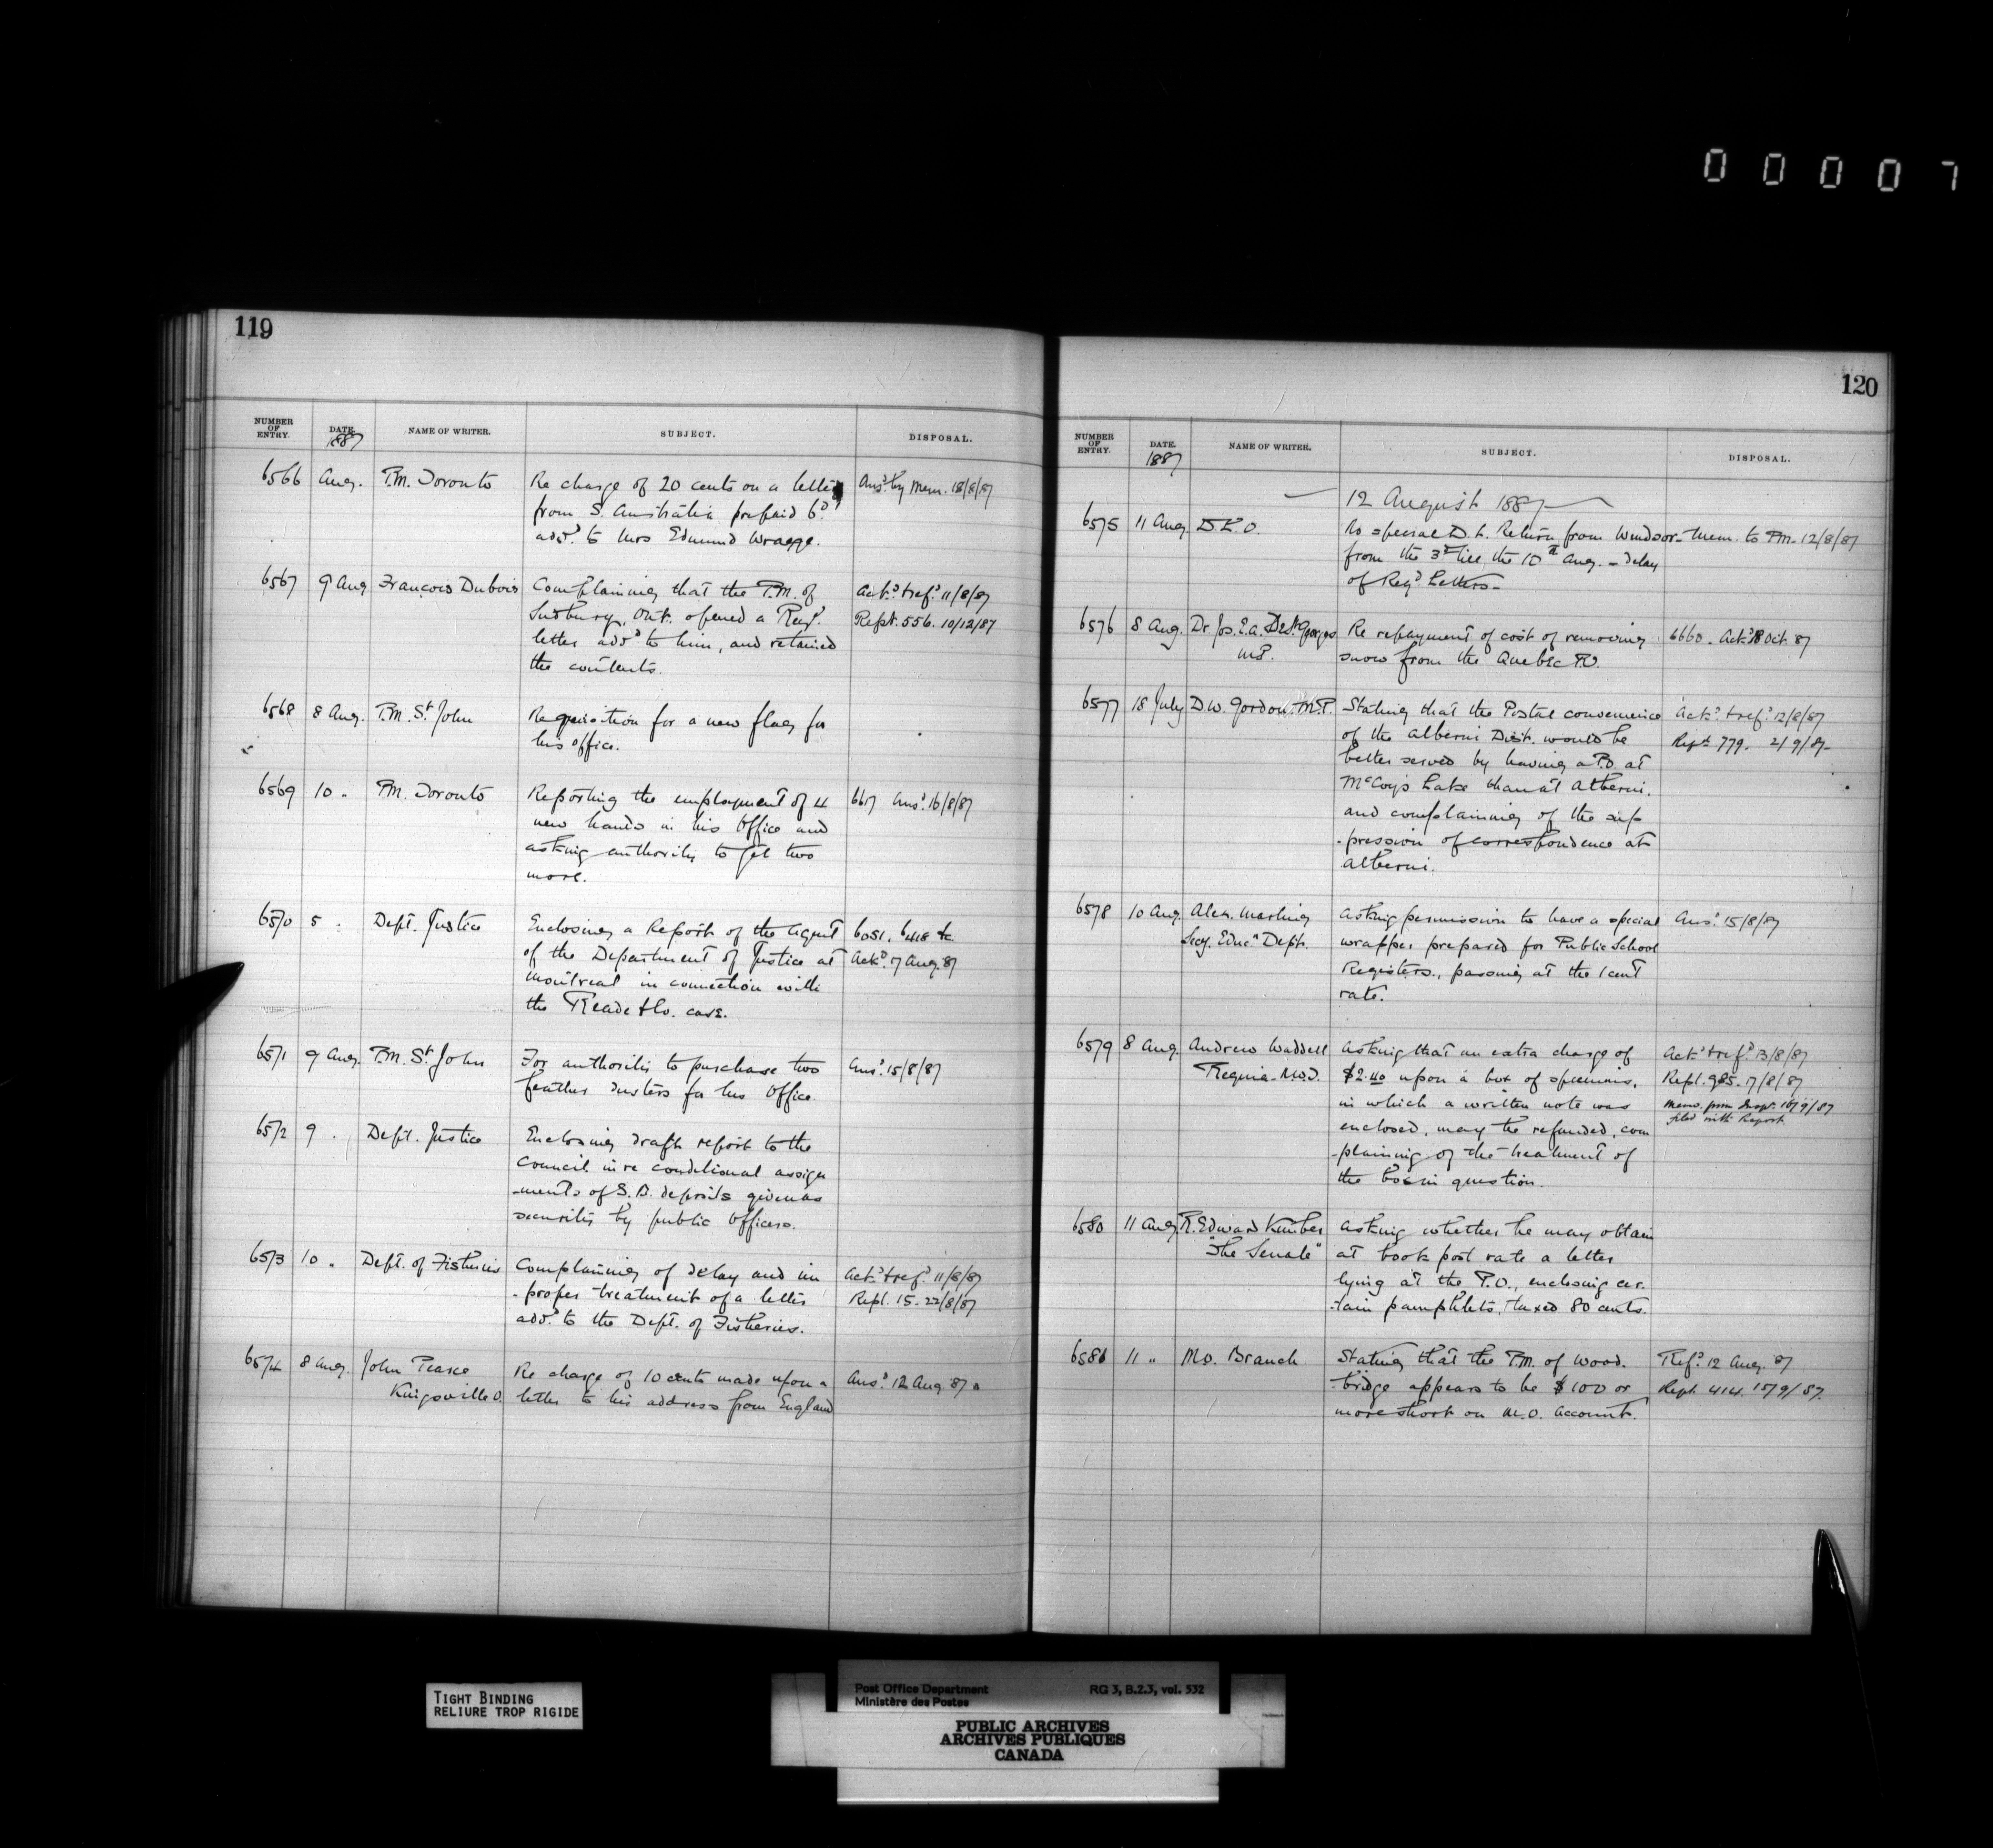 00007
119
NUMBER OF ENTRY. DATE. 1887 NAME OF WRITER. SUBJECT. DISPOSAL.
6566 Aug. P.M. Toronto Re charge of 20 cents on a letter Ansd. by Mem. 18/8/87
from S. Australia prepaid 6d.
addd. to Mrs Edmund Wragge.
6567 9 Aug François Dubois Complaining that the P.M. of Ackd. & refd. 11/8/87
Sudbury, Ont. opened a Regd. Rept. 556. 10/12/87
letter addd to him, and retained
the contents.
6568 8 Aug. P.M. St John Requisition for a new flag for
his office.
6569 10 " P.M. Toronto Reporting the employment of 4 6617 Ansd. 16/8/87
new hands in his Office and
asking authority to get two
more.
6570 5 " Dept. Justice Enclosing a Report of the Agent 6051, 6418 &c.
of the Department of Justice at Ackd. 17 Aug. 87
Montreal in connection with
the Reade & Co. case.
6571 9 Aug. P.M. St John For authority to purchase two Ansd. 15/8/87
feather dusters for his Office.
6572 9 " Dept. Justice Enclosing draft report to the
Council in re conditional assign
-ments of S.B. deposits given as
security by public Officers.
6573 10 " Dept. of Fisheries Complaining of delay and im Ackd. & refd. 11/8/87
-proper treatment of a letter Rept. 15. 22/8/87
addd. to the Dept. of Fisheries.
6574 8 Aug. John Pearce Re charge of 10 cents made upon a Ansd. 12 Aug. 87
Kingsville O. letter to his address from England
120
NUMBER OF ENTRY. DATE. 1887 NAME OF WRITER. SUBJECT. DISPOSAL.
12 August 1887
6575 11 Aug D.L.O. As special D.L. Return from Windsor - Mem. to P.M. 12/8/87
from the 3rd till the 10th Aug. - delay
of Regd. Letters -
6576 8 Aug. Dr. Jos. E.A. DeSt. Georges Re repayment of cost of removing 6660. Ackd. 18 Oct. 87
M.P. snow from the Quebec P.O.
6577 18 July D.W. Gordon. M.P. Stating that the Postal convenience Ackd. & refd. 12/8/87
of the Alberni Dist. would be Rept. 779. 2/9/87-
better served by having a P.O. at
McCoy's Lake than at Alberni.
and complaining of the sup
-pression of correspondence at
Alberni.
6578 10 Aug. Alex. Marling Asking permission to have a special Ansd. 15/8/87
Secy. Educn Dept. wrapper prepared for Public School
Registers, passing at the 1 cent
rate.
6579 8 Aug. Andrew Waddell Asking that an extra charge of Ackd. & refd. 13/8/87
Regina - N.W.T. $2.40 upon a box of specimens, Rept. 985. 17/8/87
in which a written note was Memo. from Inspr. 16/9/87
enclosed, may be refunded, com filed with Report.
-plaining of the treatment of
the box in question.
6580 11 Aug. R. Edward Kimber Asking whether he may obtain
"The Senate" at book post rate a letter
lying at the P.O., enclosing cer-
-tain pamphlets, taxed 80 cents.
6581 11 " M.O. Branch Stating that the P.M. of Wood- Refd. 12 Aug. 87
-bridge appears to be $100 or Rept. 414. 15/9/87.
more short on M.O. Account.
TIGHT BINDING
RELIURE TROP RIGIDE
Post Office Department RG 3, B.2.3, vol. 532
Ministère des Postes
PUBLIC ARCHIVES
ARCHIVES PUBLIQUES
CANADA